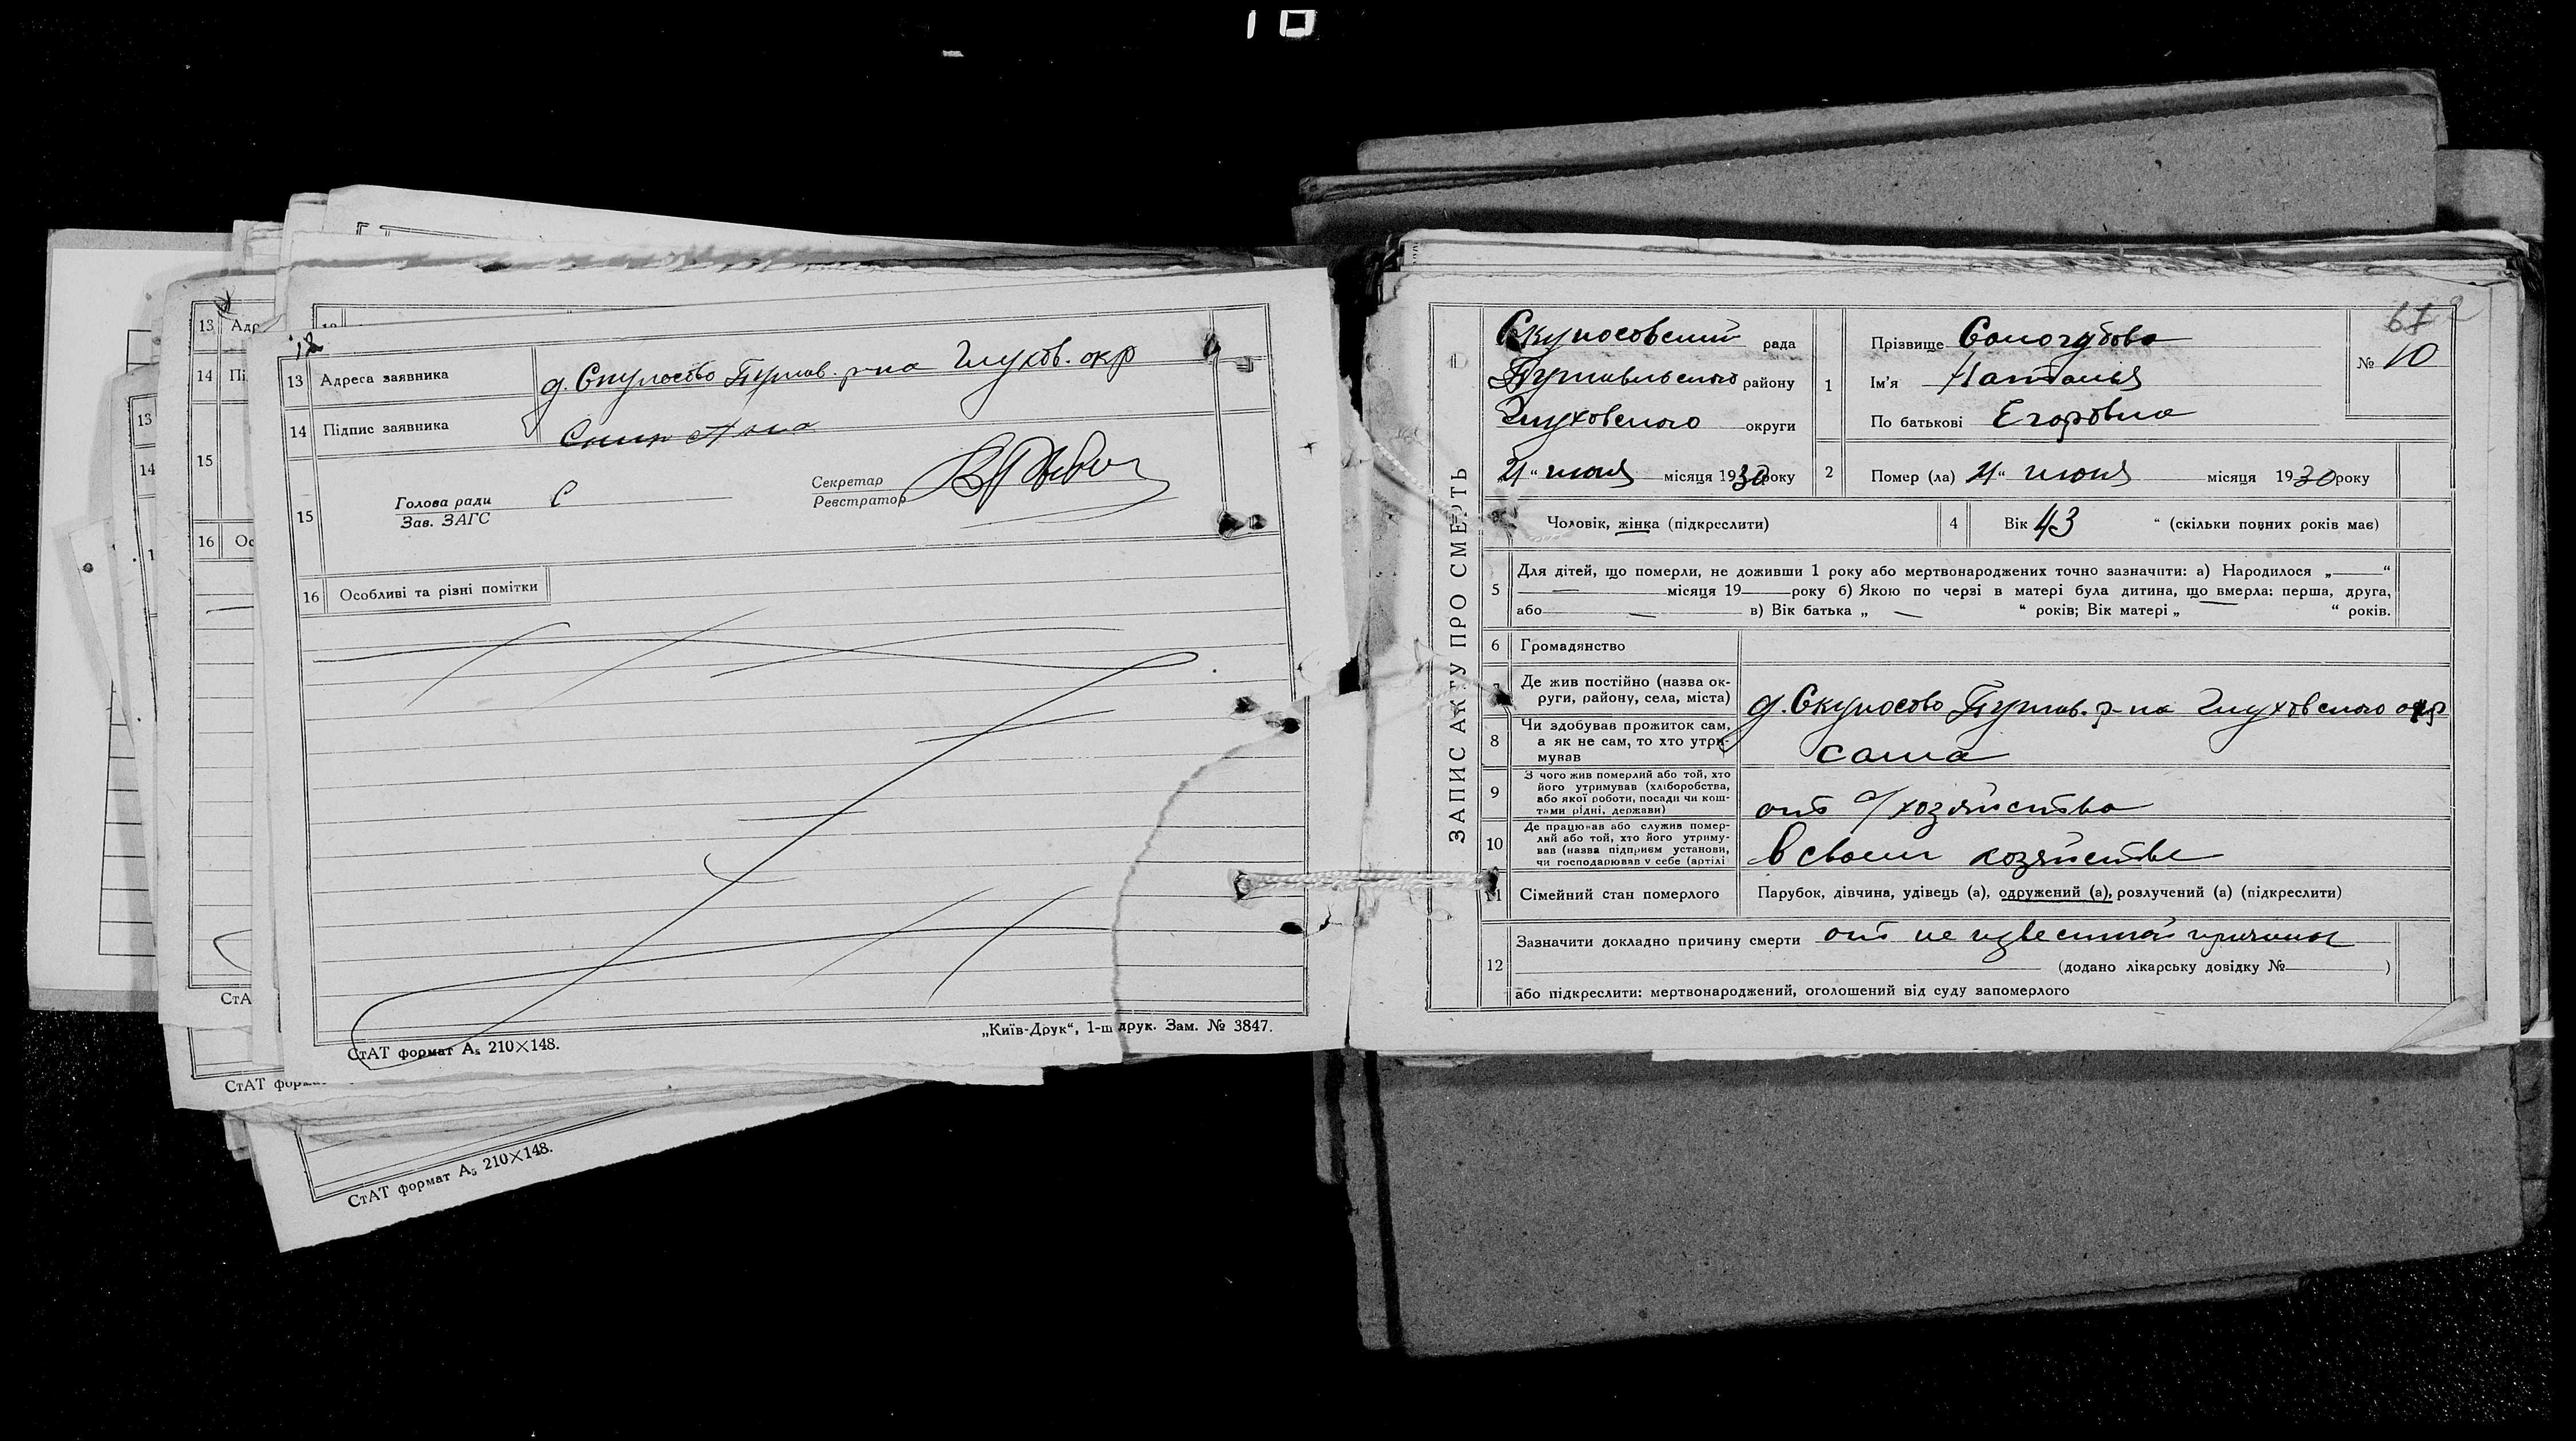 13 Адр
14 Пі
13
14
15
16 Ос
СтА
СтАТ форм
СтАТ формат А₅ 210×148.
12
13 Адреса заявника д. Скуносово Путив. р-на Глухов. окр
14 Підпис заявника
15 Голова ради С
Зав. ЗАГС
Секретар
Реєстратор
16 Особливі та різні помітки
СтАТ формат А₅ 210×148.
„Київ-Друк“, 1-ш друк. Зам. № 3847.
ЗАПИС АКТУ ПРО СМЕРТЬ
Скуносовский рада
Путивльского району
Глуховского округи
„21“ июня місяця 1930 року
1 Прізвище Сологубова
Ім'я Наталия
По батькові Егоровна
№ 10
2 Помер (ла) 21“ июня місяця 1930 року
Чоловік, жінка (підкреслити)
4 Вік 43 “ (скільки повних років має)
5 Для дітей, що померли, не доживши 1 року або мертвонароджених точно зазначити: а) Народилося „ “
місяця 19 року б) Якою по черзі в матері була дитина, що вмерла: перша, друга,
або в) Вік батька „ “ років; Вік матері „ “ років.
6 Громадянство
7 Де жив постійно (назва ок-
руги, району, села, міста) д. Скуносово Путив. р-на Глуховского окр
8 Чи здобував прожиток сам,
а як не сам, то хто утри-
мував сама
9 З чого жив померлий або той, хто
його утримував (хліборобства,
або якої роботи, посади чи кош-
тами рідні, держави) от с/хозяйства
10 Де працював або служив помер-
лий або той, хто його утриму-
вав (назва підприєм установи,
чи господарював у себе (артілі в своем хозяйстве
11 Сімейний стан померлого Парубок, дівчина, удівець (а), одружений (а), розлучений (а) (підкреслити)
12 Зазначити докладно причину смерти от не известной причины
(додано лікарську довідку № )
або підкреслити: мертвонароджений, оголошений від суду запомерлого